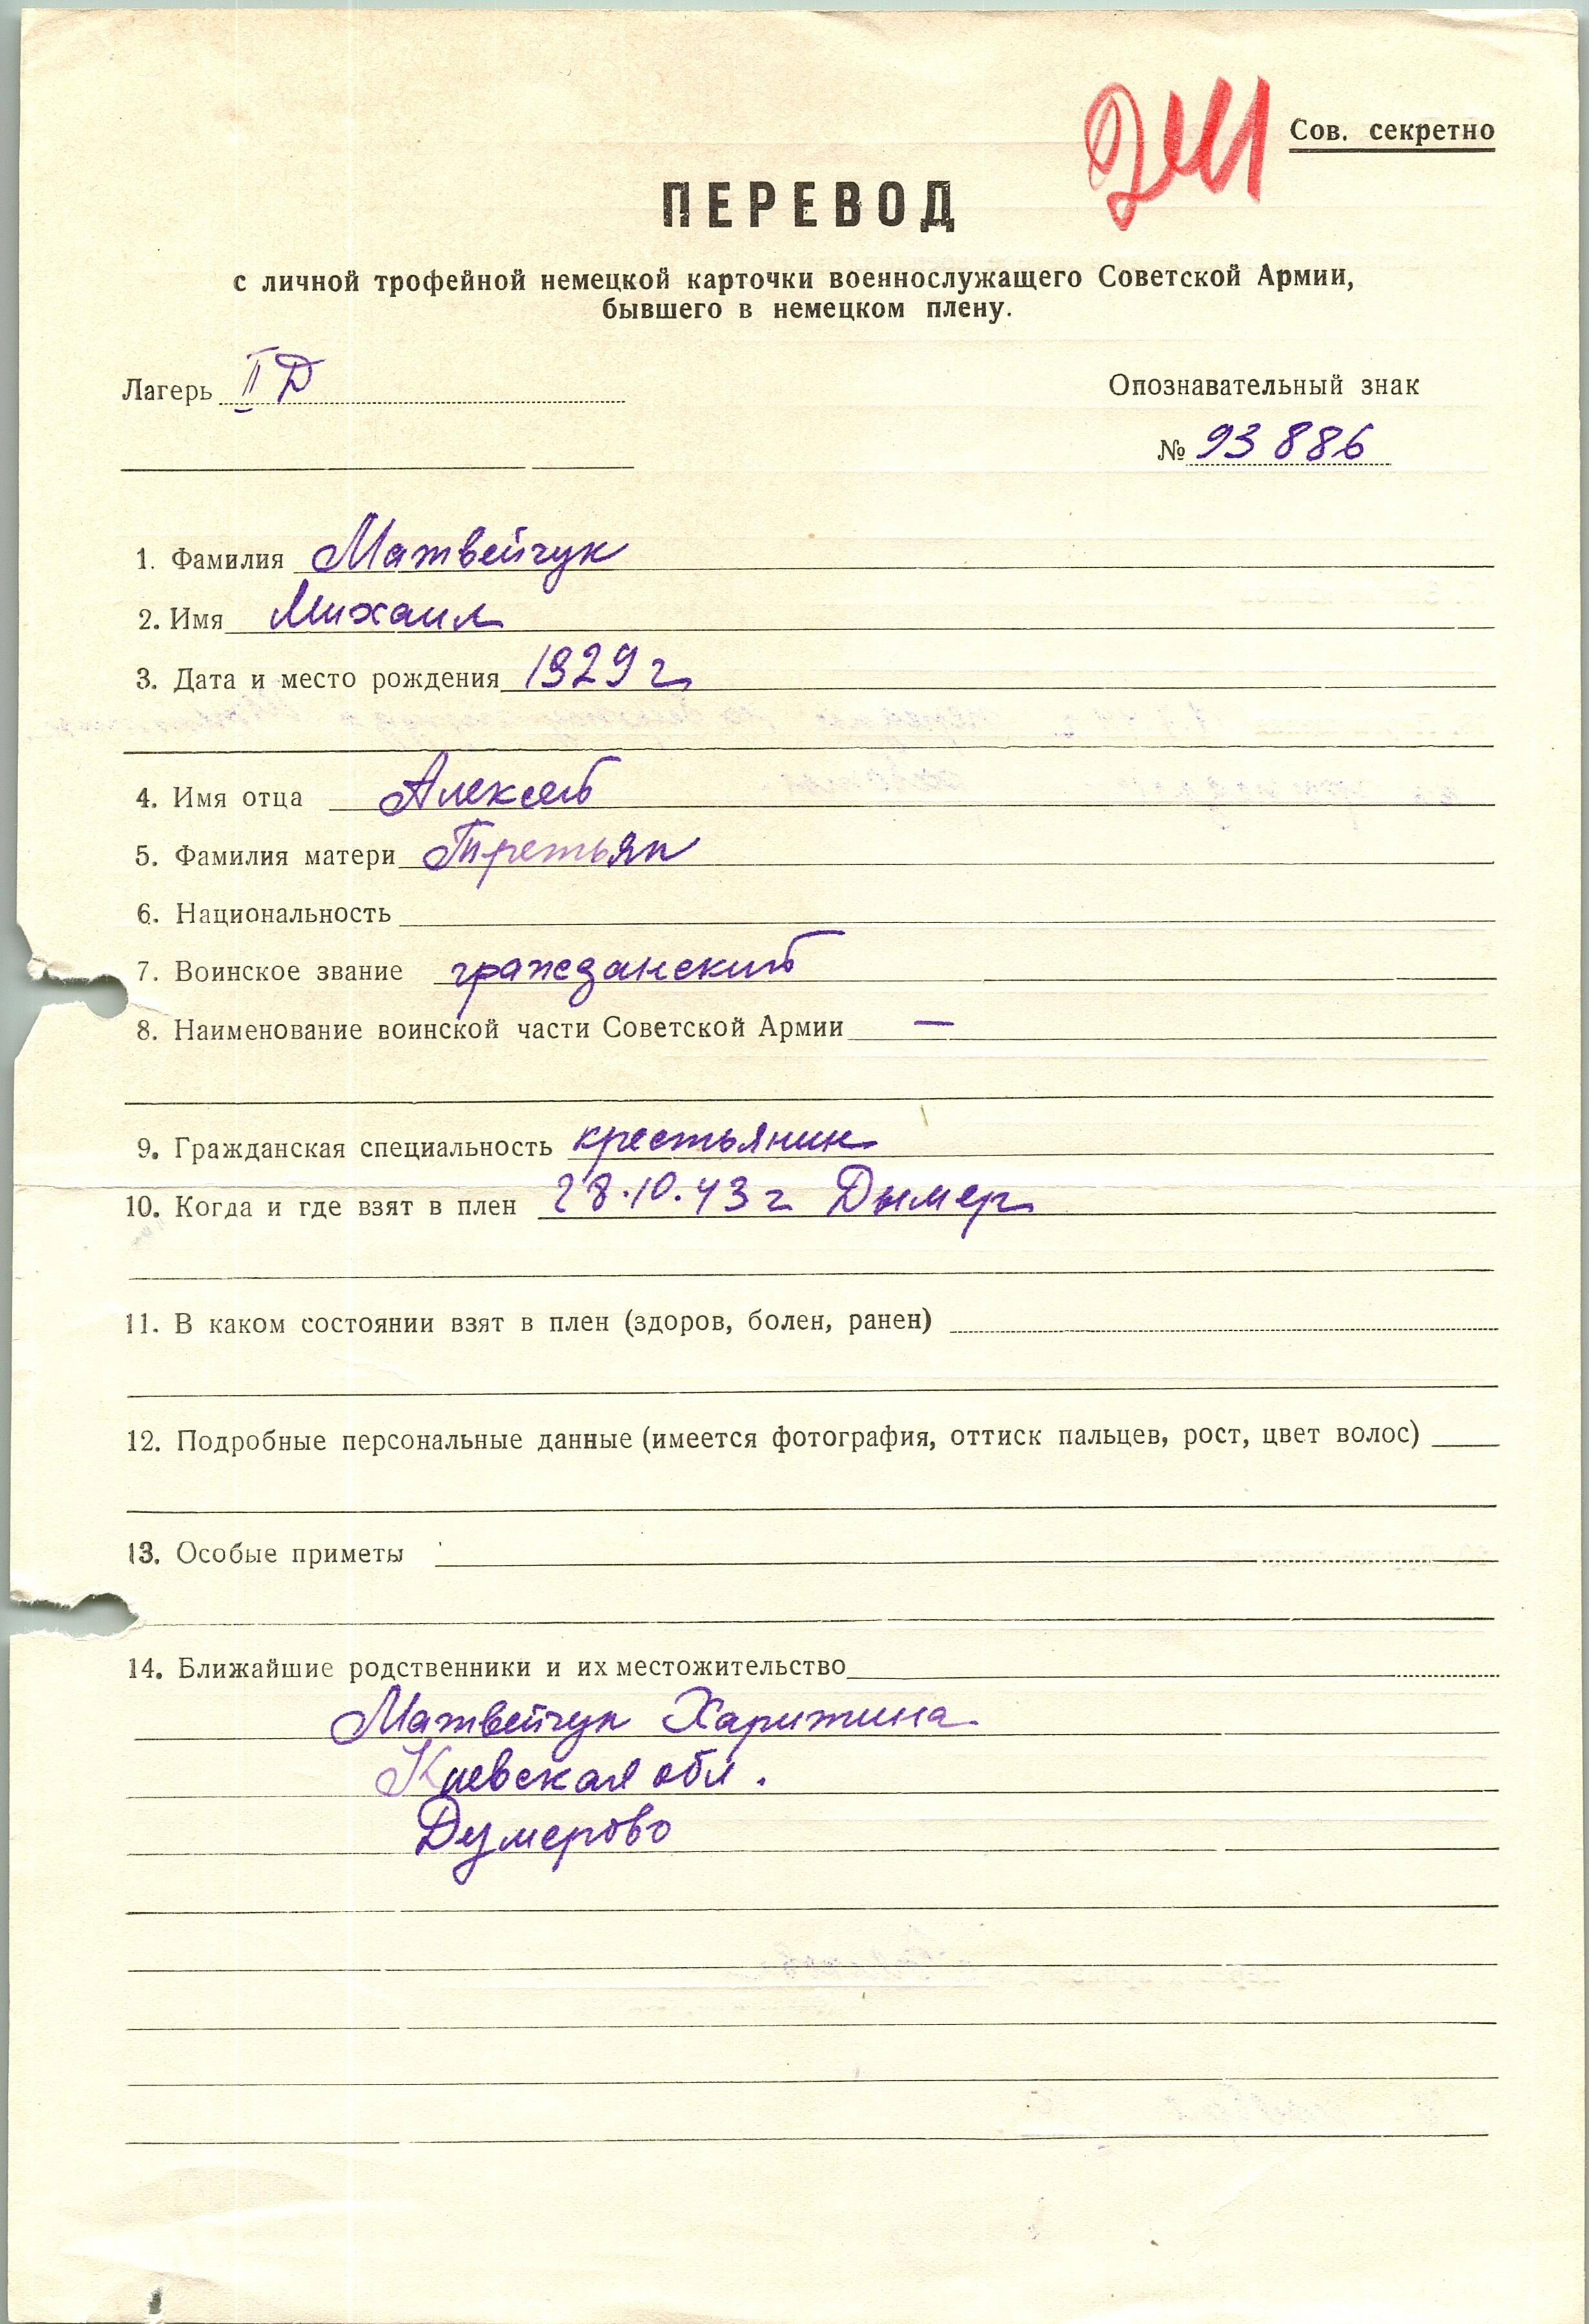 Сов. секретно
ПЕРЕВОД
с личной трофейной немецкой карточки военнослужащего Советской Армии,
бывшего в немецком плену.
Лагерь II Д
Опознавательный знак
№ 93886
1. Фамилия Матвейчук
2. Имя Михаил
3. Дата и место рождения 1929 г
4. Имя отца Алексей
5. Фамилия матери Третьяк
6. Национальность
7. Воинское звание гражданский
8. Наименование воинской части Советской Армии —
9. Гражданская специальность крестьянин
10. Когда и где взят в плен 28.10.43 г Дымер
11. В каком состоянии взят в плен (здоров, болен, ранен)
12. Подробные персональные данные (имеется фотография, оттиск пальцев, рост, цвет волос)
13. Особые приметы
14. Ближайшие родственники и их местожительство
Матвейчук Харитина
Киевская обл.
Думерово